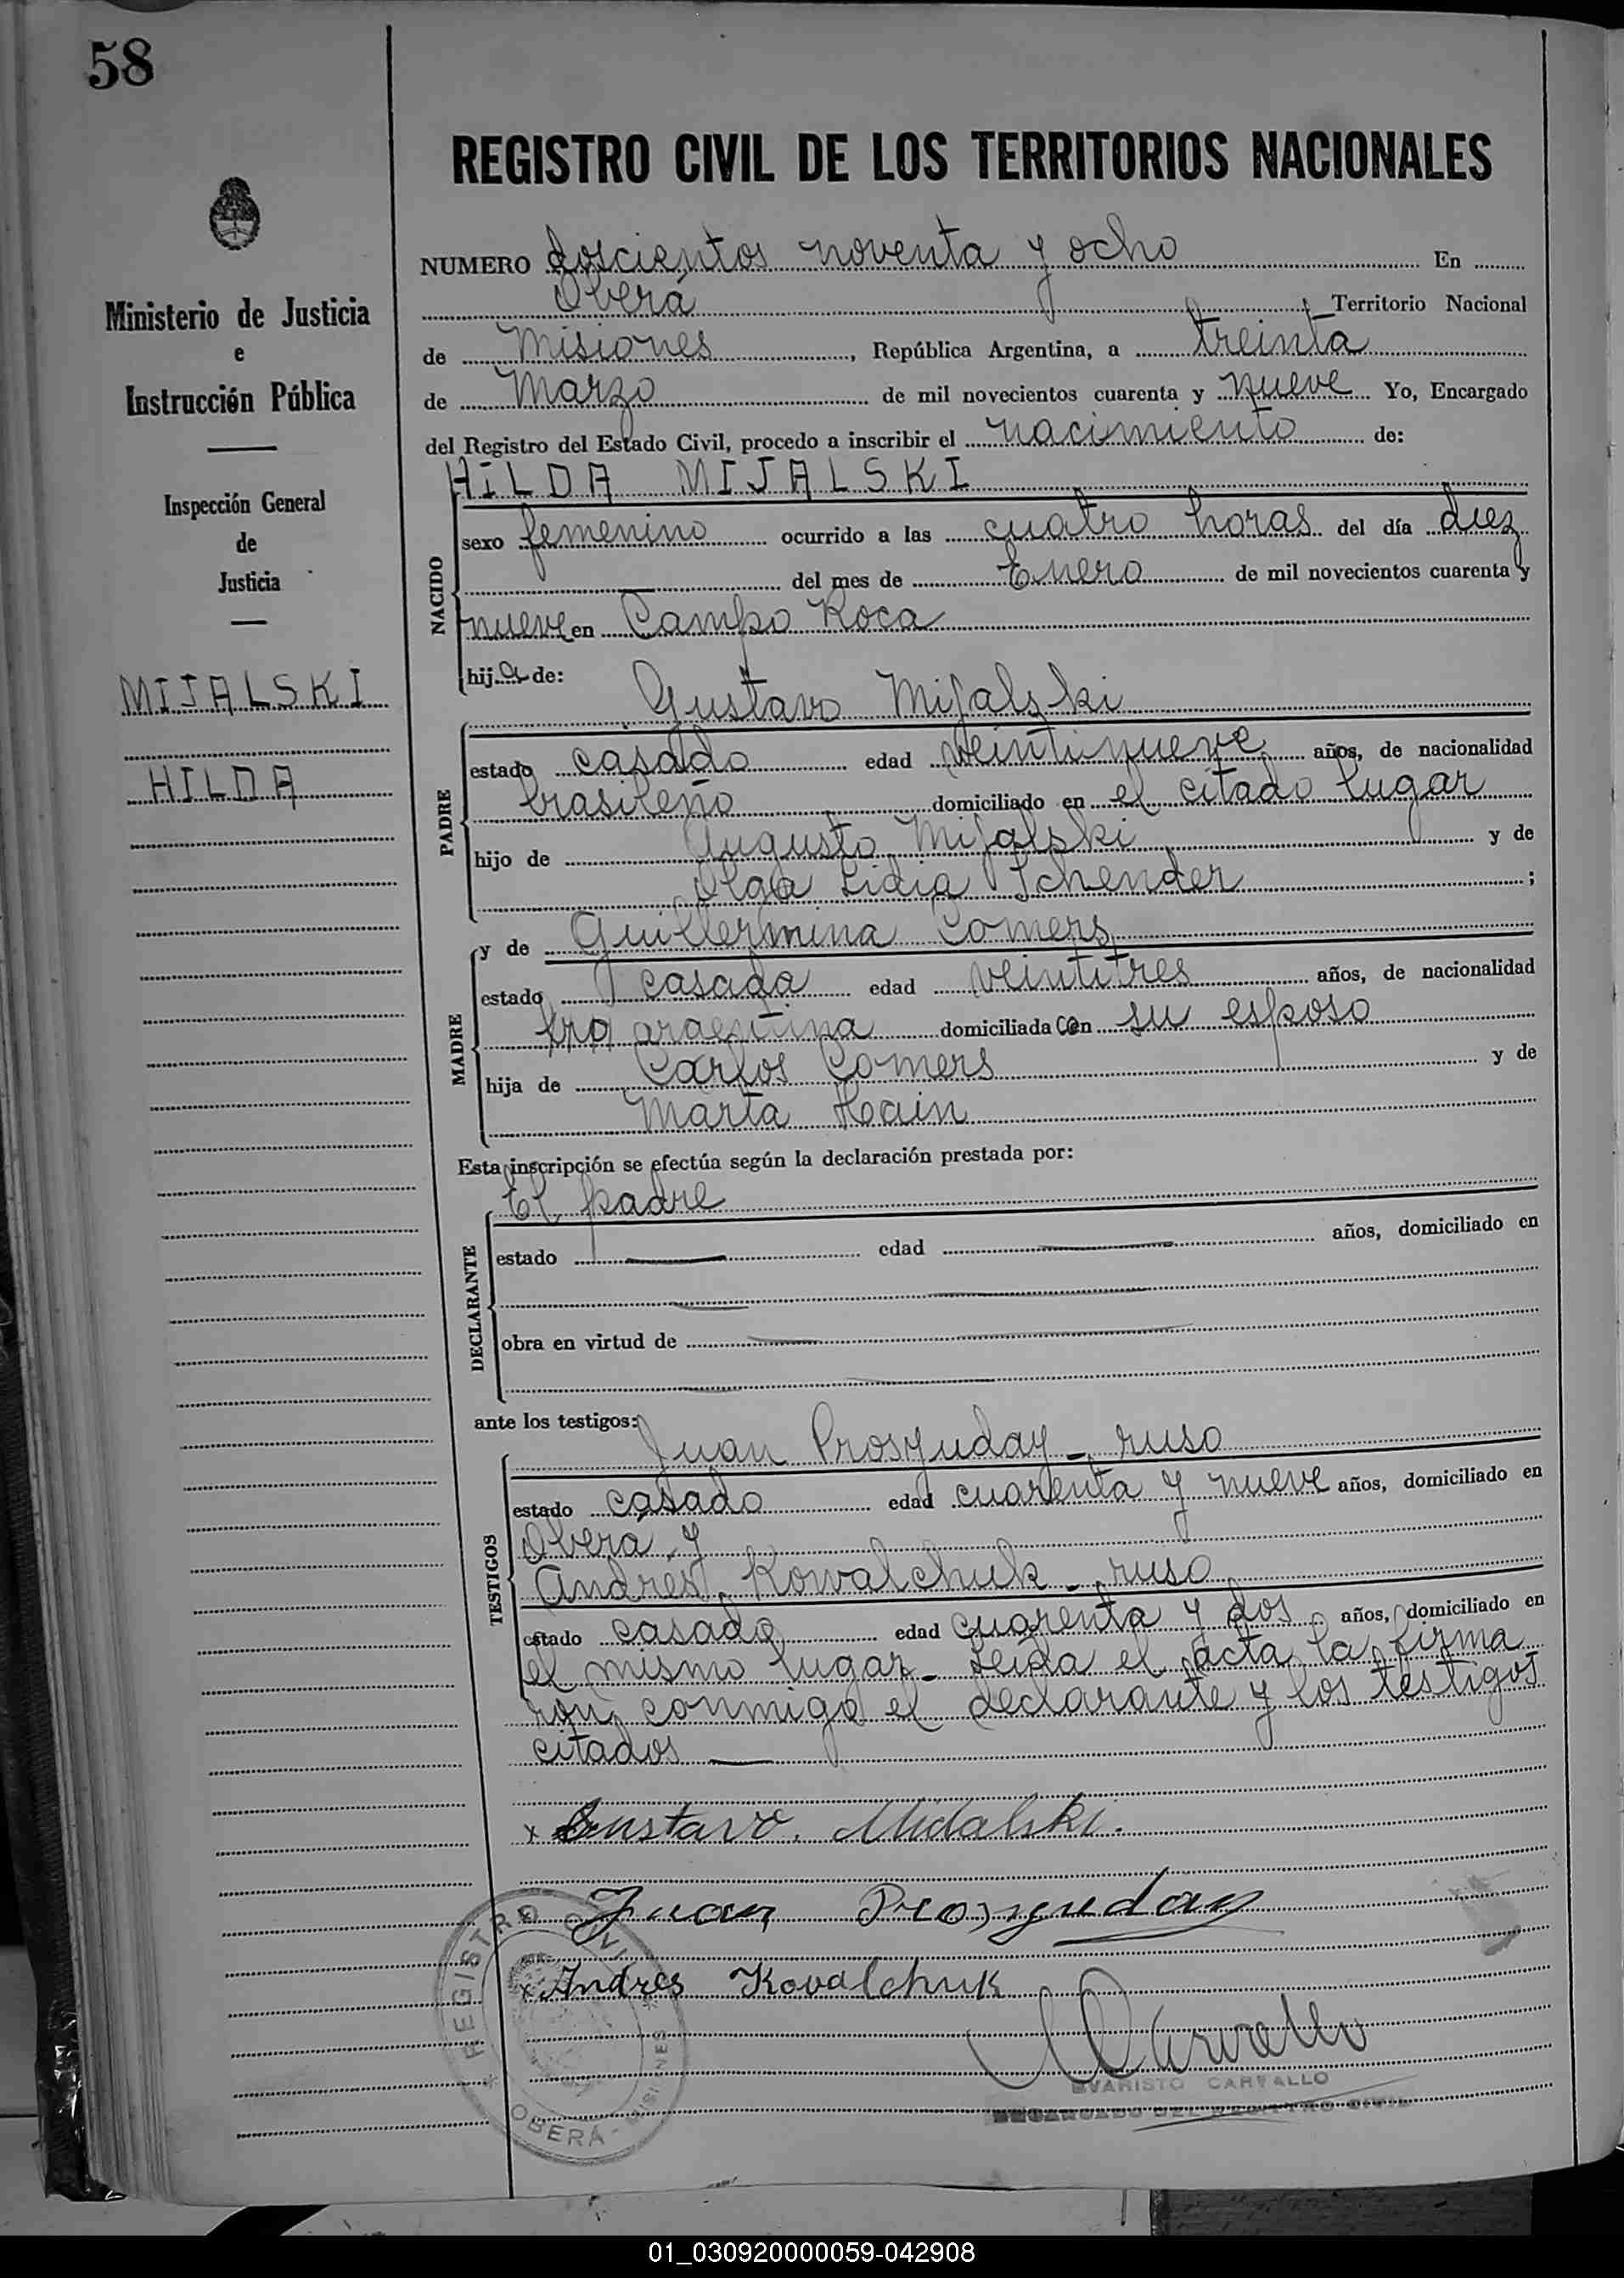 58
REGISTRO CIVIL DE LOS TERRITORIOS NACIONALES
Ministerio de Justicia
e
Instrucción Pública
Inspección General
de
Justicia
MIJALSKI
HILDA
NUMERO doscientos noventa y ocho En
Oberá, Territorio Nacional
de Misiones, República Argentina, a treinta
de Marzo de mil novecientos cuarenta y nueve Yo, Encargado
del Registro del Estado Civil, procedo a inscribir el nacimiento de:
HILDA MIJALSKI
NACIDO
sexo femenino ocurrido a las cuatro horas del día diez
del mes de Enero de mil novecientos cuarenta y
nueve en Campo Roca
hija de:
Gustavo Mijalski
PADRE
estado casado edad veintinueve años, de nacionalidad
brasileño domiciliado en el citado lugar
hijo de Augusto Mijalski y de
Olga Lidia Schender;
MADRE
y de Guillermina Comers
estado casada edad veintitres años, de nacionalidad
argentina domiciliada con su esposo
hija de Carlos Comers y de
Marta Hain
Esta inscripción se efectúa según la declaración prestada por:
El padre
DECLARANTE
estado edad años, domiciliado en
obra en virtud de
ante los testigos:
Juan Prosyuday - ruso
TESTIGOS
estado casado edad cuarenta y nueve años, domiciliado en
Oberá y
Andres Kowalchuk - ruso
estado casado edad cuarenta y dos años, domiciliado en
el mismo lugar - Leida el acta la firma
ron conmigo el declarante y los testigos
citados
x Gustavo. Midalski.
x Juan Prosyuday
x Andres Kovalchuk
Carvallo
EVARISTO CARVALLO
ENCARGADO DEL REGISTRO CIVIL
REGISTRO CIVIL
OBERÁ - MISIONES
01_030920000059-042908